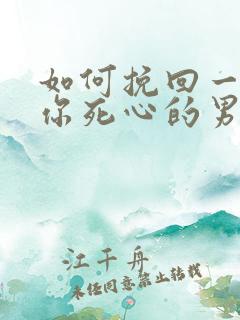 如何挽回一
你死心的男
江千舟
未经同意禁止转载